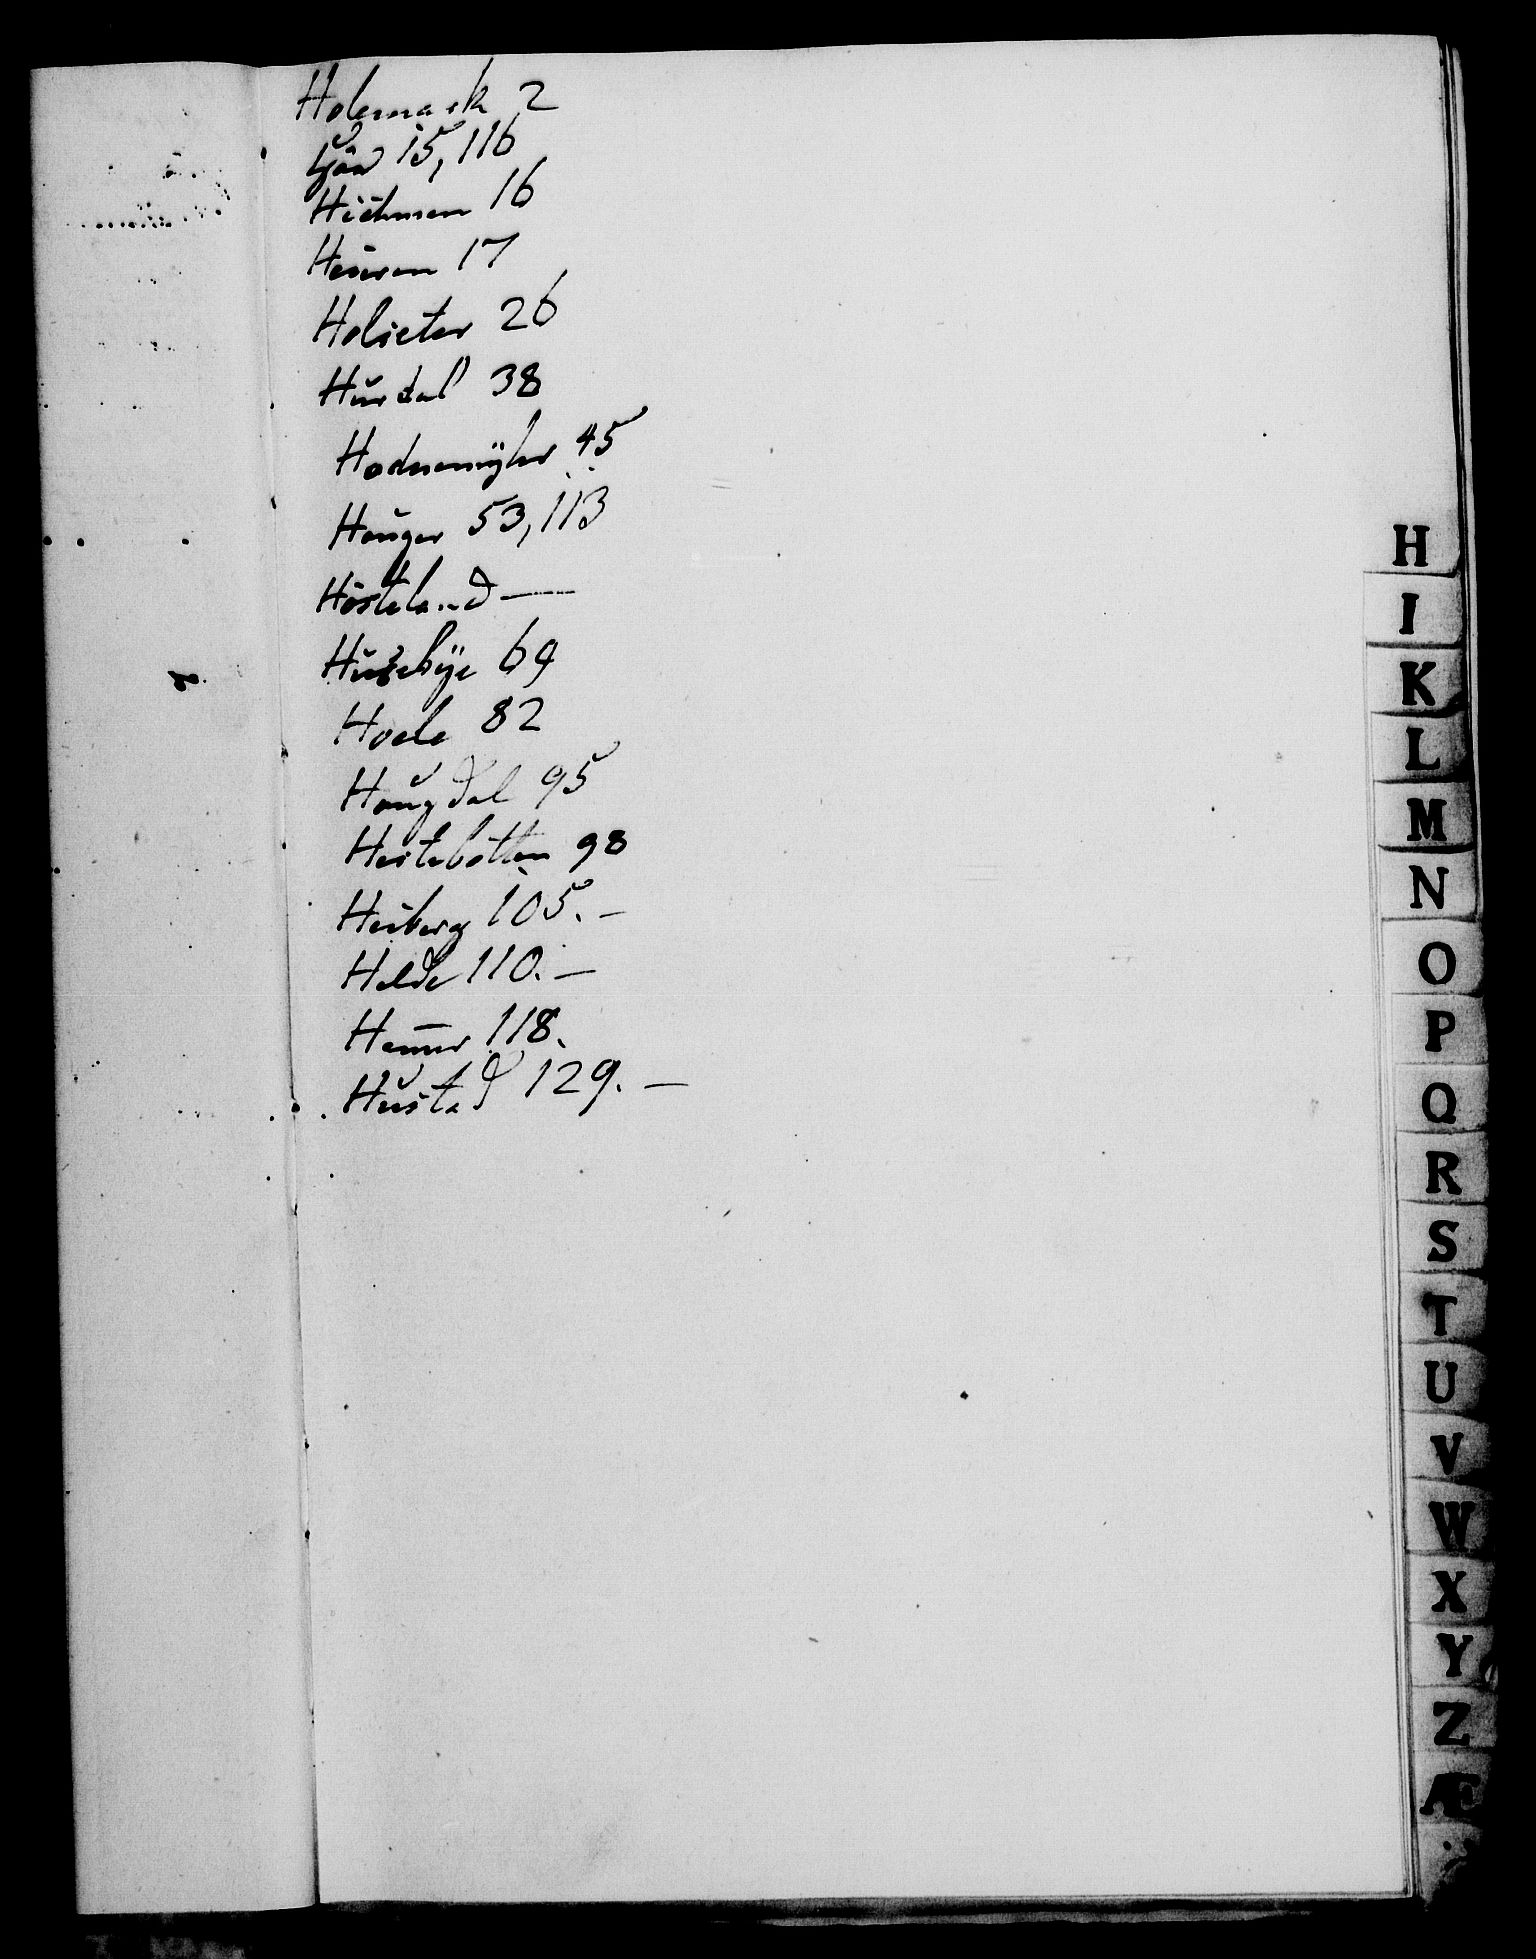 Holemark 2
Hjöa 15, 116
Höchmen 16
Heieren 17
Holseter 26
Hurdal 38
Hodnemyhr 45
Houger 53, 113
Hösteland —
Husebÿe 69
Hoele 82
Hougdal 95
Hestebotten 98
Heiberg 105. –
Helde 110. –
Hem̅er 118.
Hustad 129. –
H
I
K
L
M
N
O
P
Q
R
S
T
U
V
W
X
Y
Z
Æ